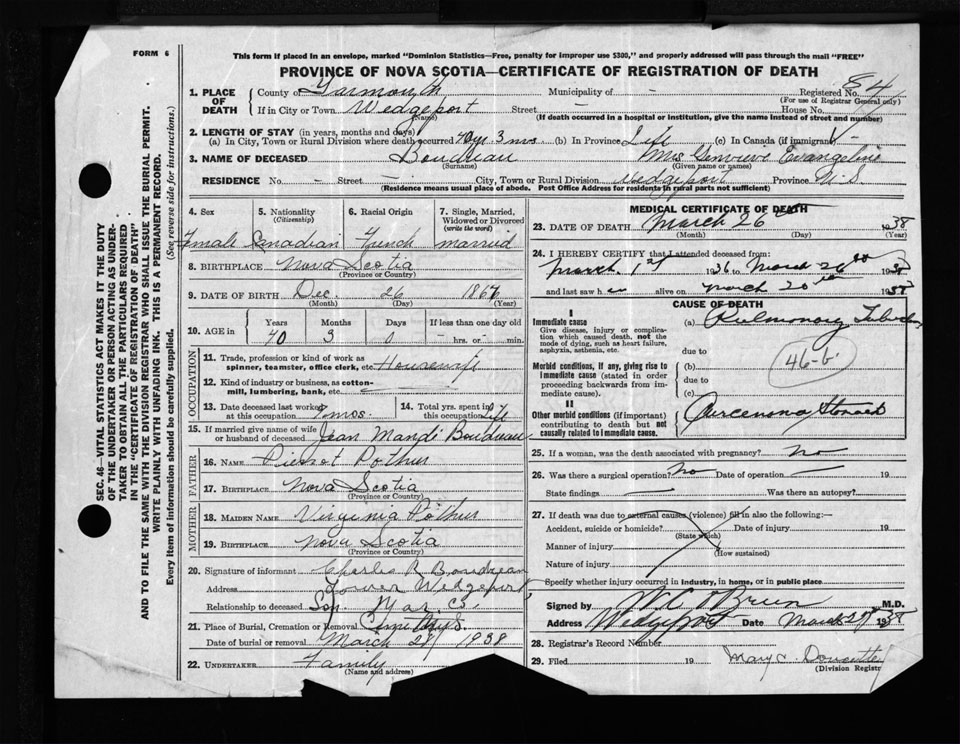 FORM 6
This form if placed in an envelope, marked "Dominion Statistics—Free, penalty for improper use $300," and properly addressed will pass through the mail "FREE"
PROVINCE OF NOVA SCOTIA—CERTIFICATE OF REGISTRATION OF DEATH
SEC. 46—VITAL STATISTICS ACT MAKES IT THE DUTY
OF THE UNDERTAKER OR PERSON ACTING AS UNDER-
TAKER TO OBTAIN ALL THE PARTICULARS REQUIRED
IN THE "CERTIFICATE OF REGISTRATION OF DEATH"
AND TO FILE THE SAME WITH THE DIVISION REGISTRAR WHO SHALL ISSUE THE BURIAL PERMIT.
WRITE PLAINLY WITH UNFADING INK. THIS IS A PERMANENT RECORD.
Every item of information should be carefully supplied. (See reverse side for instructions.)
1. PLACE OF DEATH
County of Yarmouth Municipality of - Registered No. 84
(For use of Registrar General only)
If in City or Town Wedgeport Street - House No.
(Name) (If death occurred in a hospital or institution, give the name instead of street and number)
2. LENGTH OF STAY (in years, months and days)
(a) In City, Town or Rural Division where death occurred 3 mos (b) In Province Life (c) In Canada (if immigrant)
3. NAME OF DECEASED Boudreau Mrs Genivieve Evangeline
(Surname) (Given name or names)
RESIDENCE No. - Street - City, Town or Rural Division Wedgeport Province N.S.
(Residence means usual place of abode. Post Office Address for residents in rural parts not sufficient)
4. Sex 5. Nationality (Citizenship) 6. Racial Origin 7. Single, Married, Widowed or Divorced (write the word)
Female Canadian French married
8. BIRTHPLACE Nova Scotia
(Province or Country)
9. DATE OF BIRTH Dec. 26
(Month) (Day) (Year)
10. AGE in Years Months Days If less than one day old
70 3 0 hrs. or min.
OCCUPATION
11. Trade, profession or kind of work as spinner, teamster, office clerk, etc. Housewife
12. Kind of industry or business, as cotton-mill, lumbering, bank, etc.
13. Date deceased last worked at this occupation 7 mos. 14. Total yrs. spent in this occupation Life
15. If married give name of wife or husband of deceased Jean Mandé Boudreau
FATHER
16. NAME Pothier
17. BIRTHPLACE Nova Scotia
(Province or Country)
MOTHER
18. MAIDEN NAME Virginia Pothier
19. BIRTHPLACE Nova Scotia
(Province or Country)
20. Signature of informant Charles R Boudreau
Address Lower Wedgeport
Relationship to deceased Son
21. Place of Burial, Cremation or Removal
Date of burial or removal March 28 1938
22. UNDERTAKER Family
(Name and address)
MEDICAL CERTIFICATE OF DEATH
23. DATE OF DEATH March 26 1938
(Month) (Day) (Year)
24. I HEREBY CERTIFY that I attended deceased from:
March 1st 1936 to March 26th 1938
and last saw h alive on March 1938
CAUSE OF DEATH
I
Immediate cause
Give disease, injury or complication which caused death, not the mode of dying, such as heart failure, asphyxia, asthenia, etc.
(a) Pulmonary
due to
46-b
Morbid conditions, if any, giving rise to immediate cause (stated in order proceeding backwards from immediate cause).
(b)
due to
(c)
II
Other morbid conditions (if important) contributing to death but not causally related to immediate cause.
Carcenoma Stomach
25. If a woman, was the death associated with pregnancy? No
26. Was there a surgical operation? No Date of operation 19
State findings Was there an autopsy?
27. If death was due to external causes (violence) fill in also the following:—
Accident, suicide or homicide? Date of injury 19
(State which)
Manner of injury
(How sustained)
Nature of injury
Specify whether injury occurred in industry, in home, or in public place
Signed by W.C. O'Brien M.D.
Address Wedgeport Date March 1938
28. Registrar's Record Number
29. Filed 19 Mary Doucette
(Division Registrar)